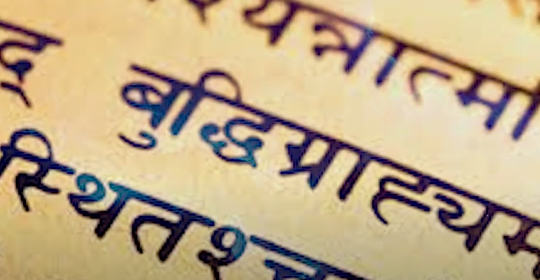 श्यन्नात्म
द् बुद्धिग्राह्यम
स्थितश्च